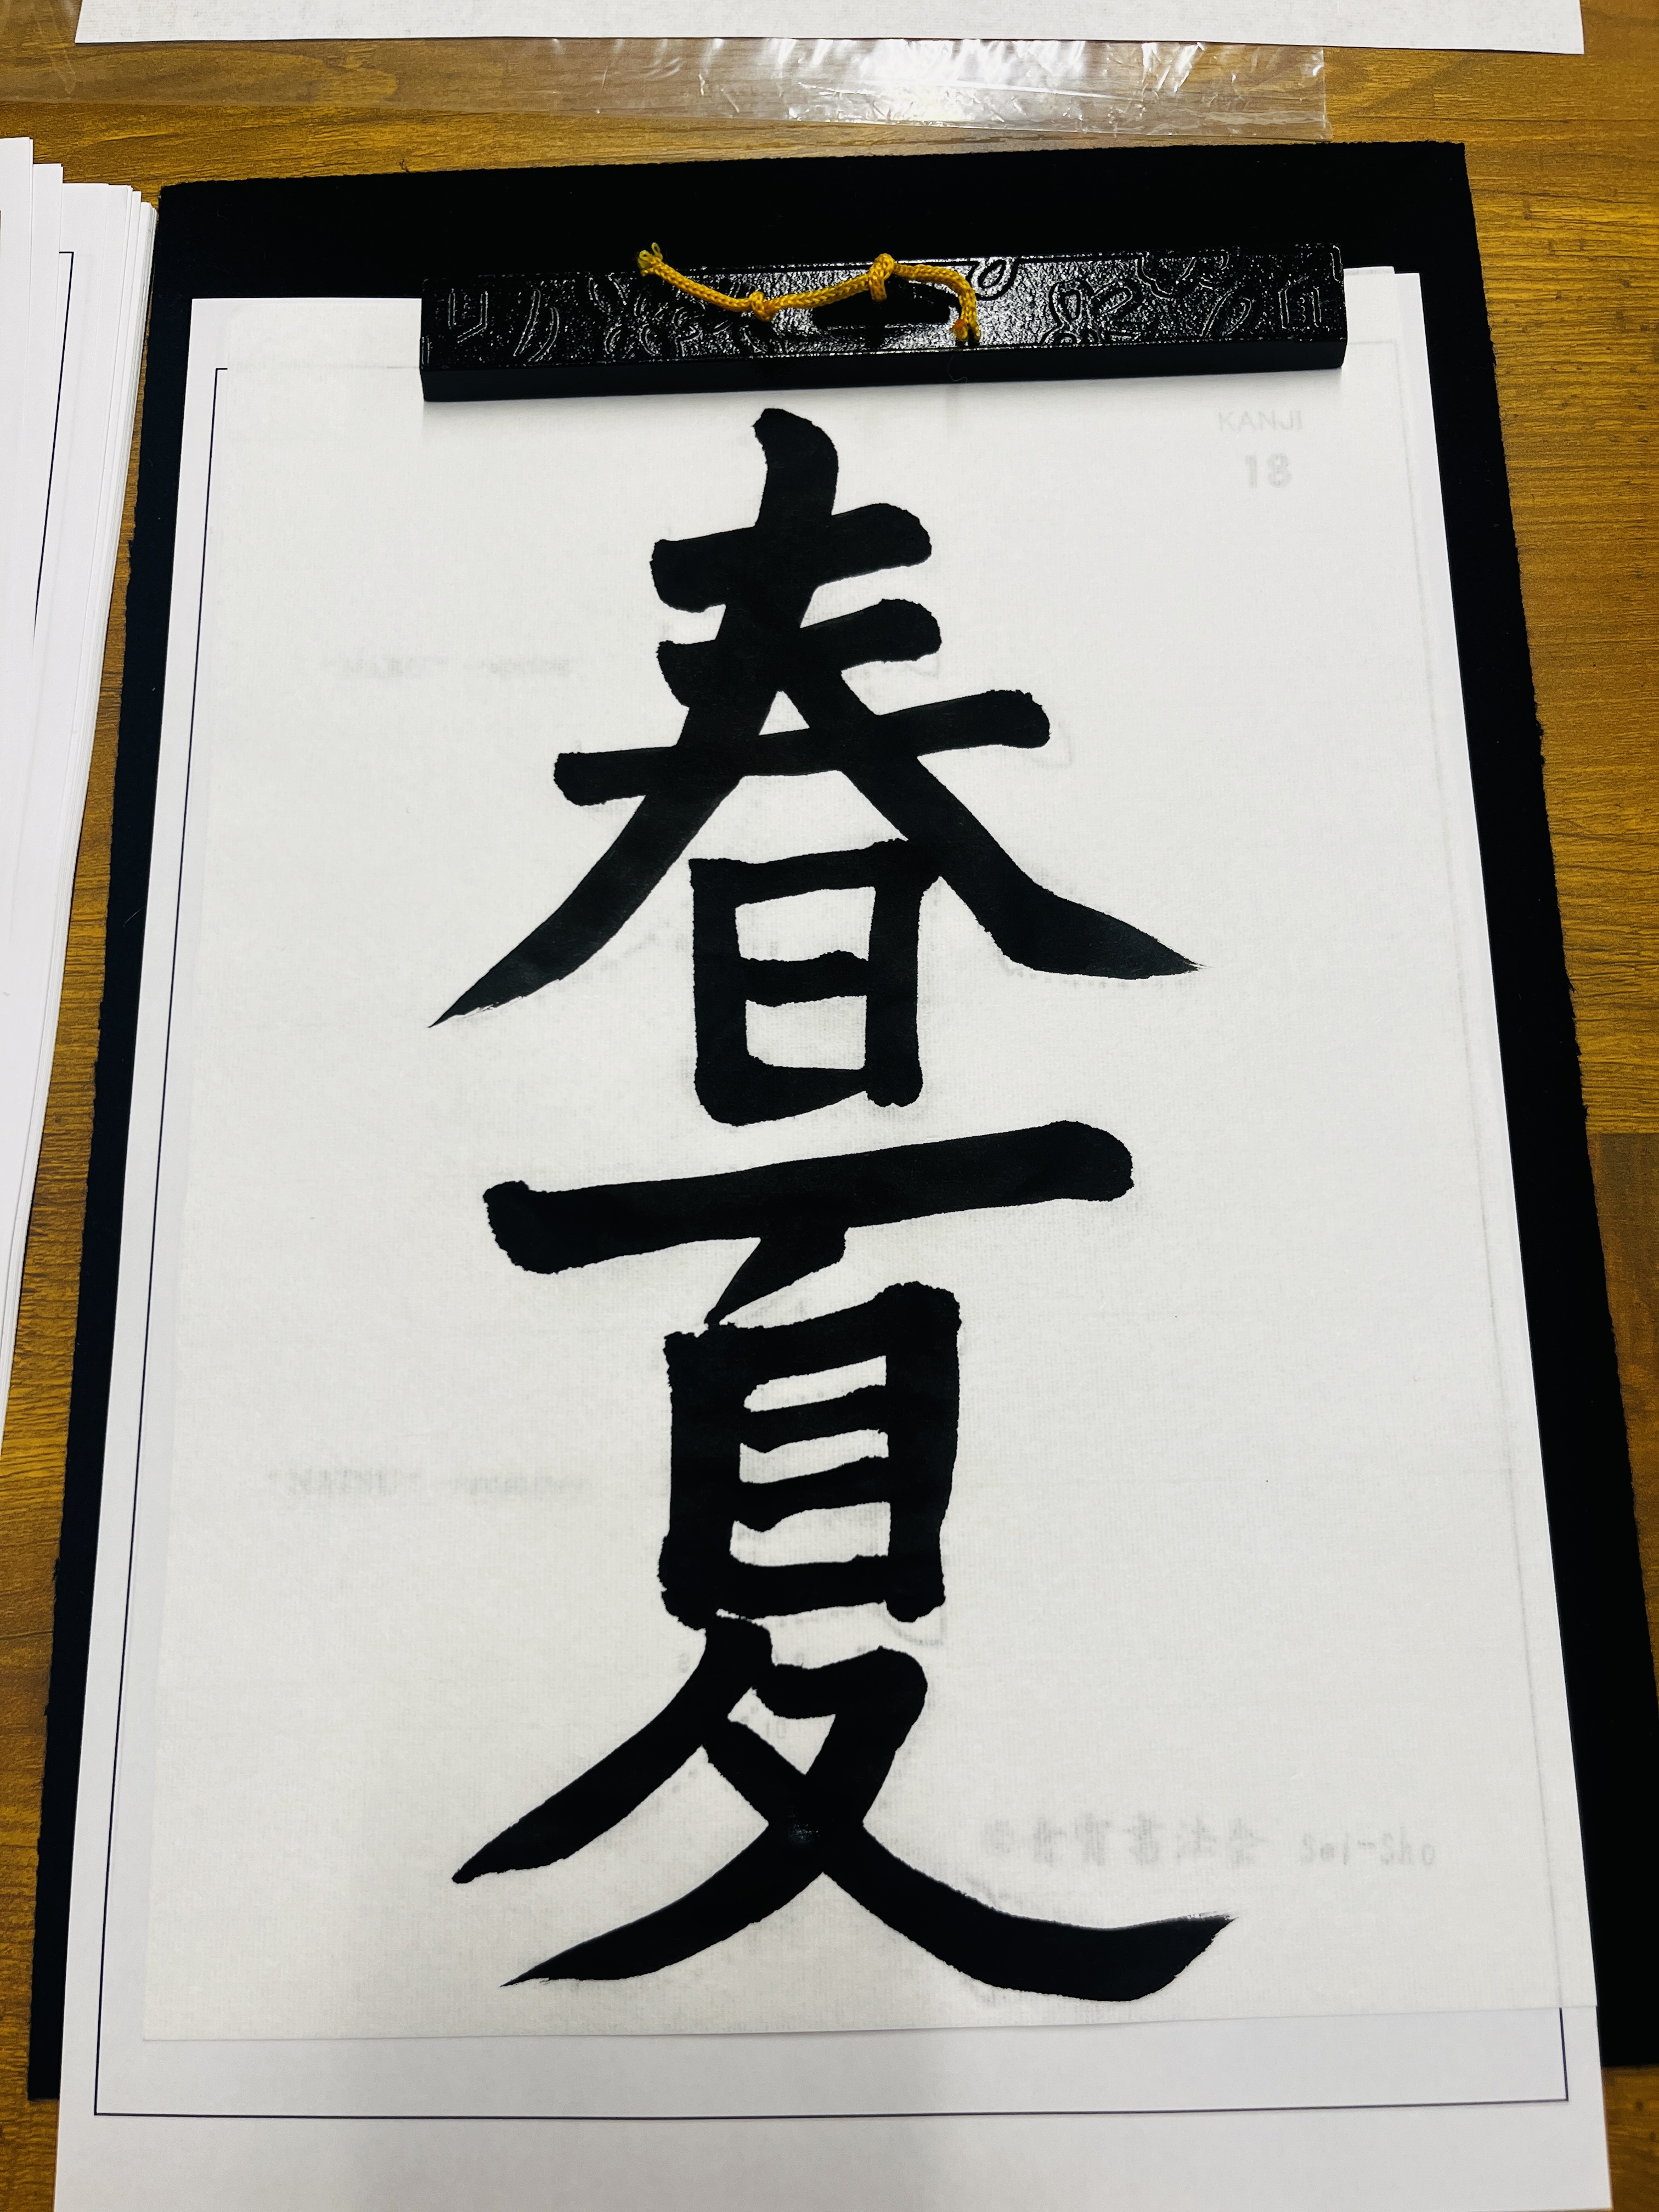 春夏
KANJI
18
Sei-Sho